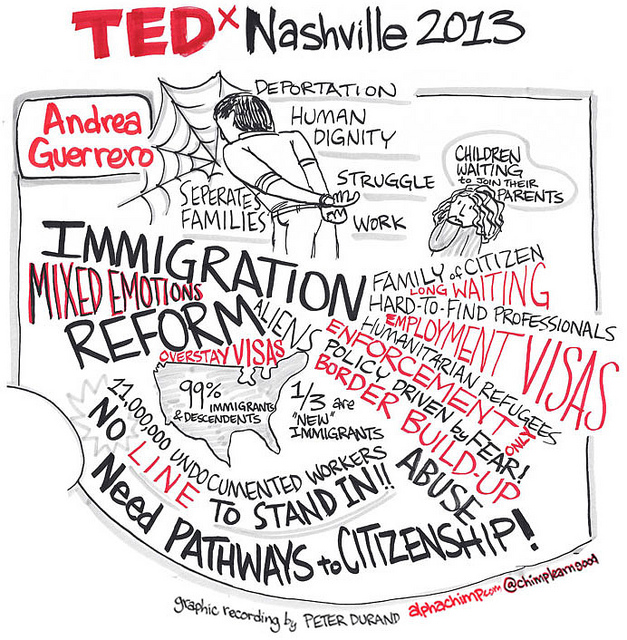 TEDx Nashville 2013
Andrea
Guerrero
DEPORTATION
HUMAN
DIGNITY
STRUGGLE
WORK
SEPERATES
FAMILIES
CHILDREN
WAITING
to JOIN THEIR
PARENTS
IMMIGRATION
REFORM
MIXED EMOTIONS
FAMILY of CITIZEN
LONG WAITING
HARD-TO-FIND PROFESSIONALS
EMPLOYMENT VISAS
HUMANITARIAN REFUGEES
ENFORCEMENT ONLY
POLICY DRIVEN by FEAR!
BORDER BUILD-UP
ABUSE
ALIENS
OVERSTAY VISAS
99%
IMMIGRANTS
& DESCENDENTS
1/3 are
"NEW"
IMMIGRANTS
11,000,000 UNDOCUMENTED WORKERS
NO LINE TO STAND IN!!
Need PATHWAYS to CITIZENSHIP!
graphic recording by PETER DURAND alphachimp.com